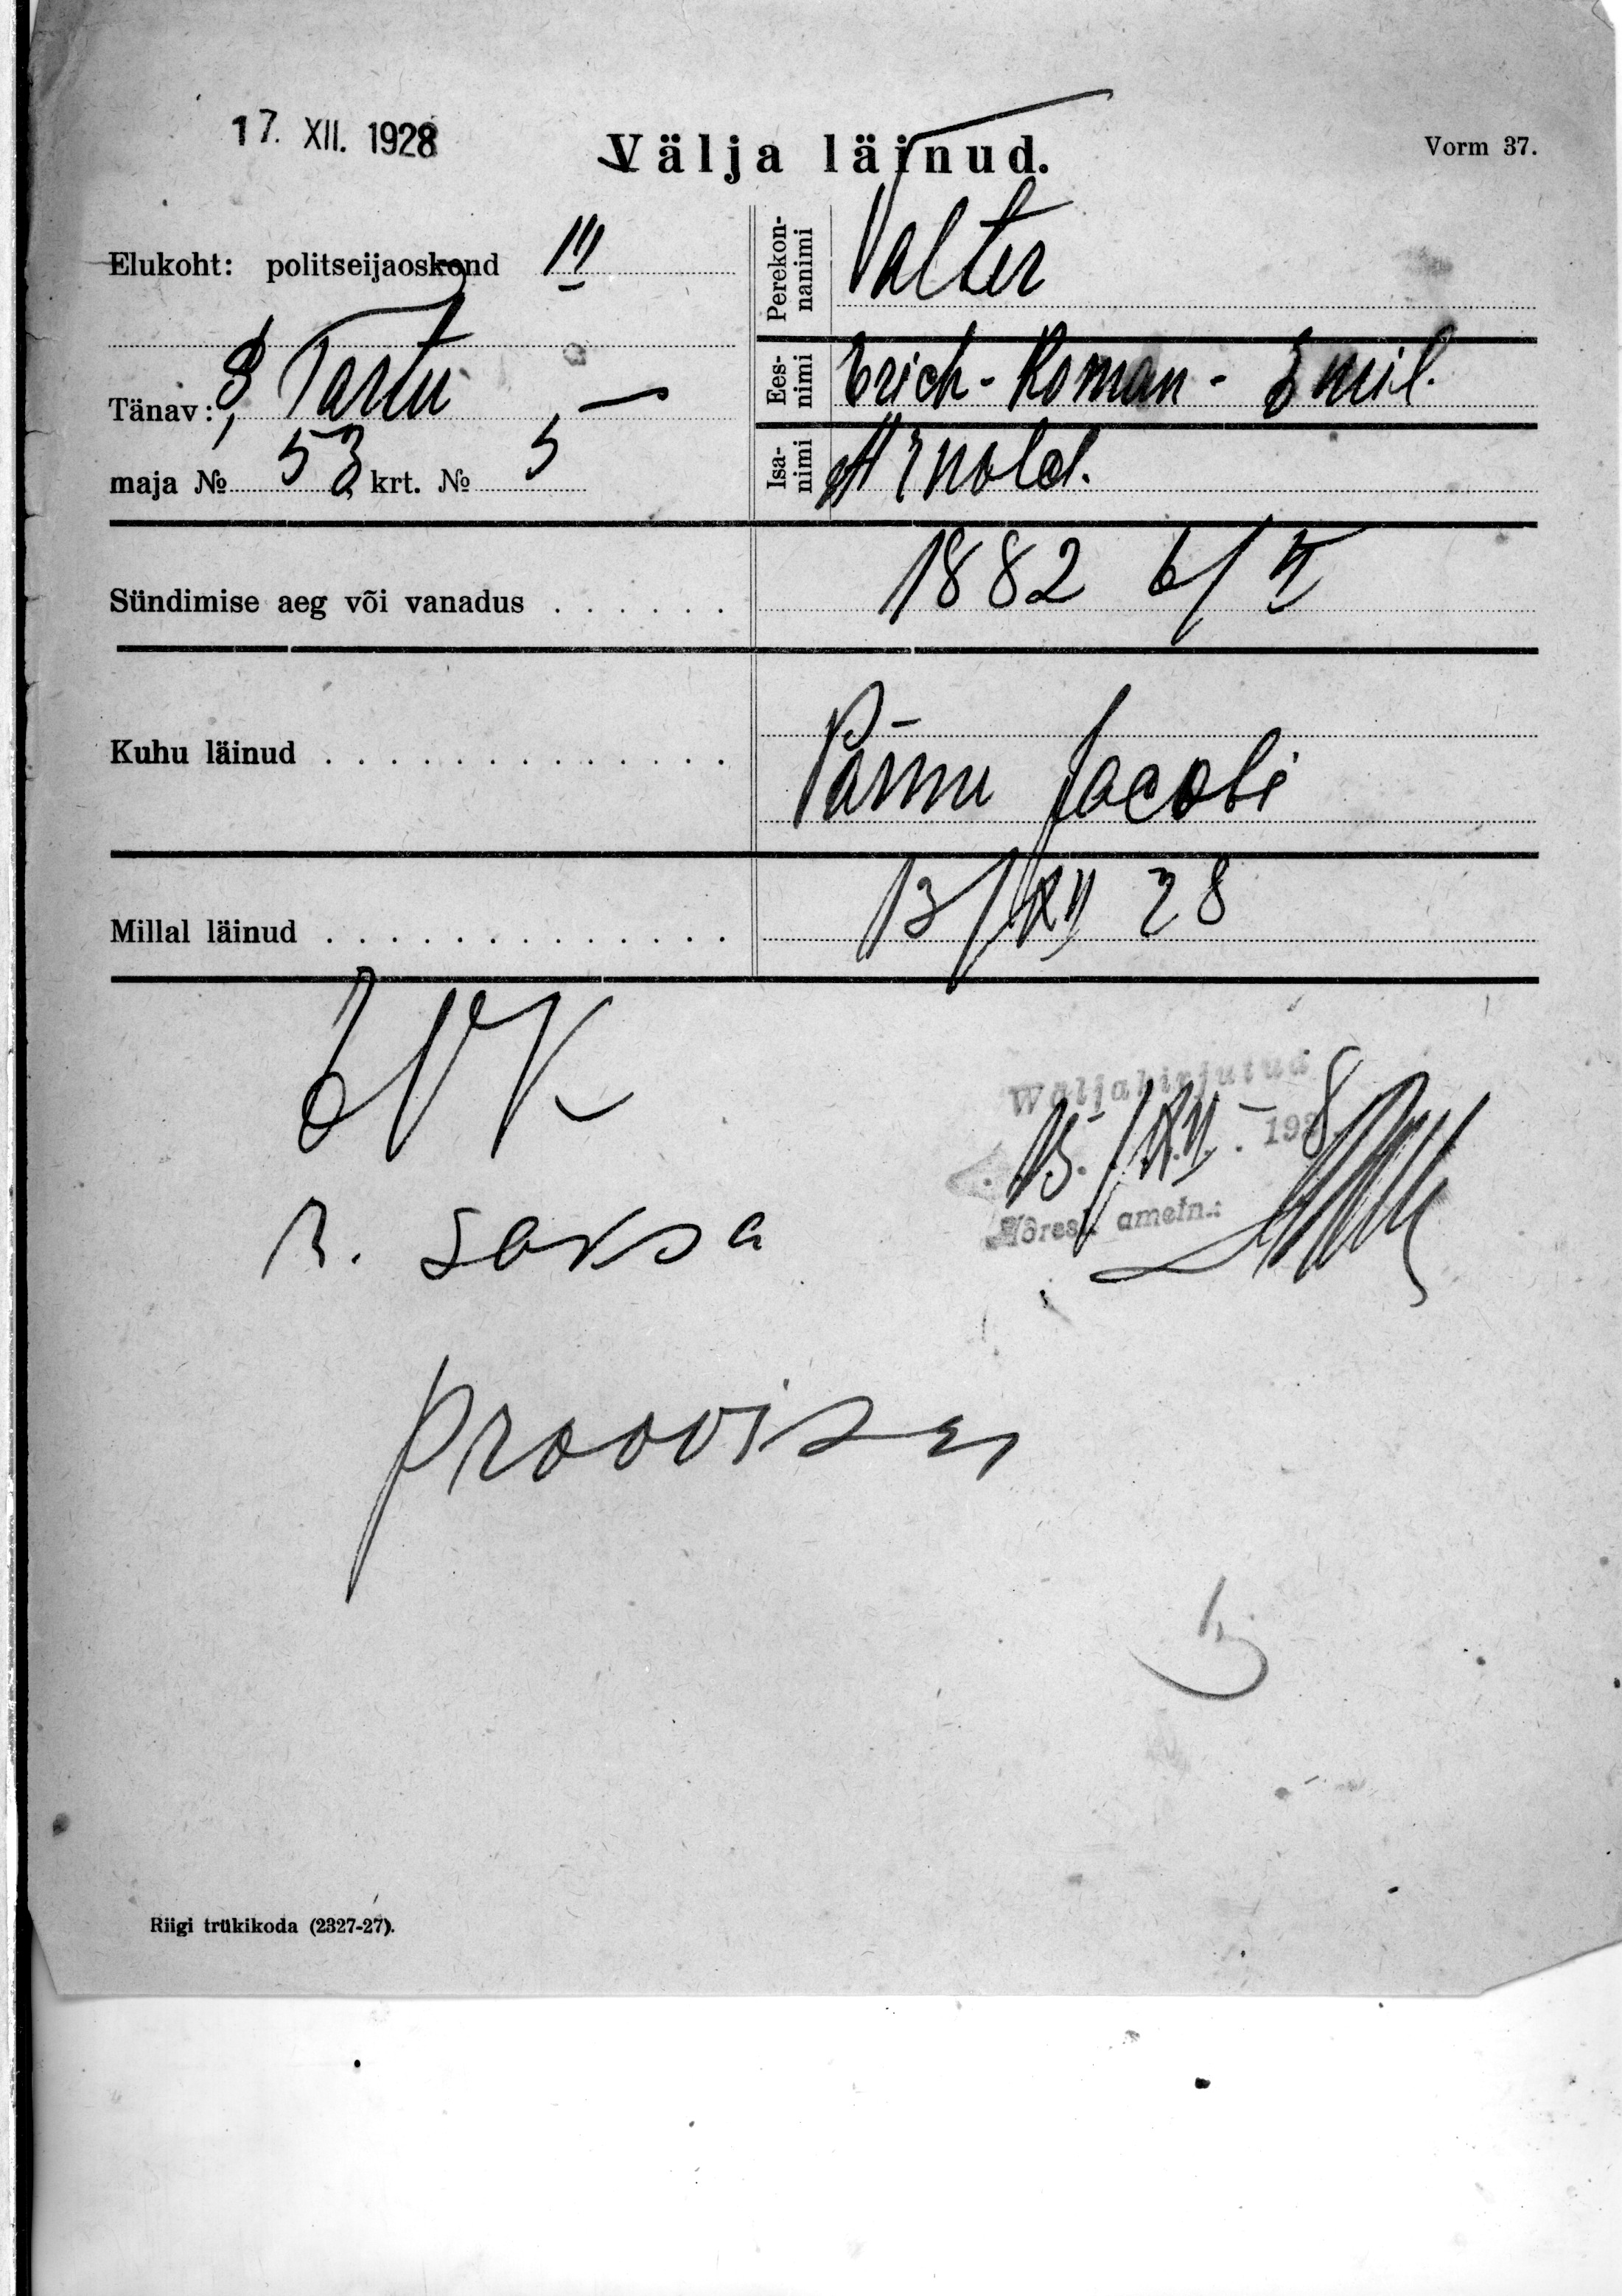 17. XII. 1928
Välja läinud.
Vorm 37.
Elukoht: politseijaoskond III
Tänav: S. Tartu
maja № 53 krt. № 5
Perekonnanimi Valter
Eesnimi Erich-Roman-Emil.
Isanimi Arnold.
Sündimise aeg või vanadus . . . . . . 1882 6/V
Kuhu läinud . . . . . . . . . . . . . Pärnu Jacobi
Millal läinud . . . . . . . . . . . . . 13/XII 28
EVK
r. saksa
Wäljakirjutud
15./XII. 1928
ametn.:
prooviser
Riigi trükikoda (2327-27).